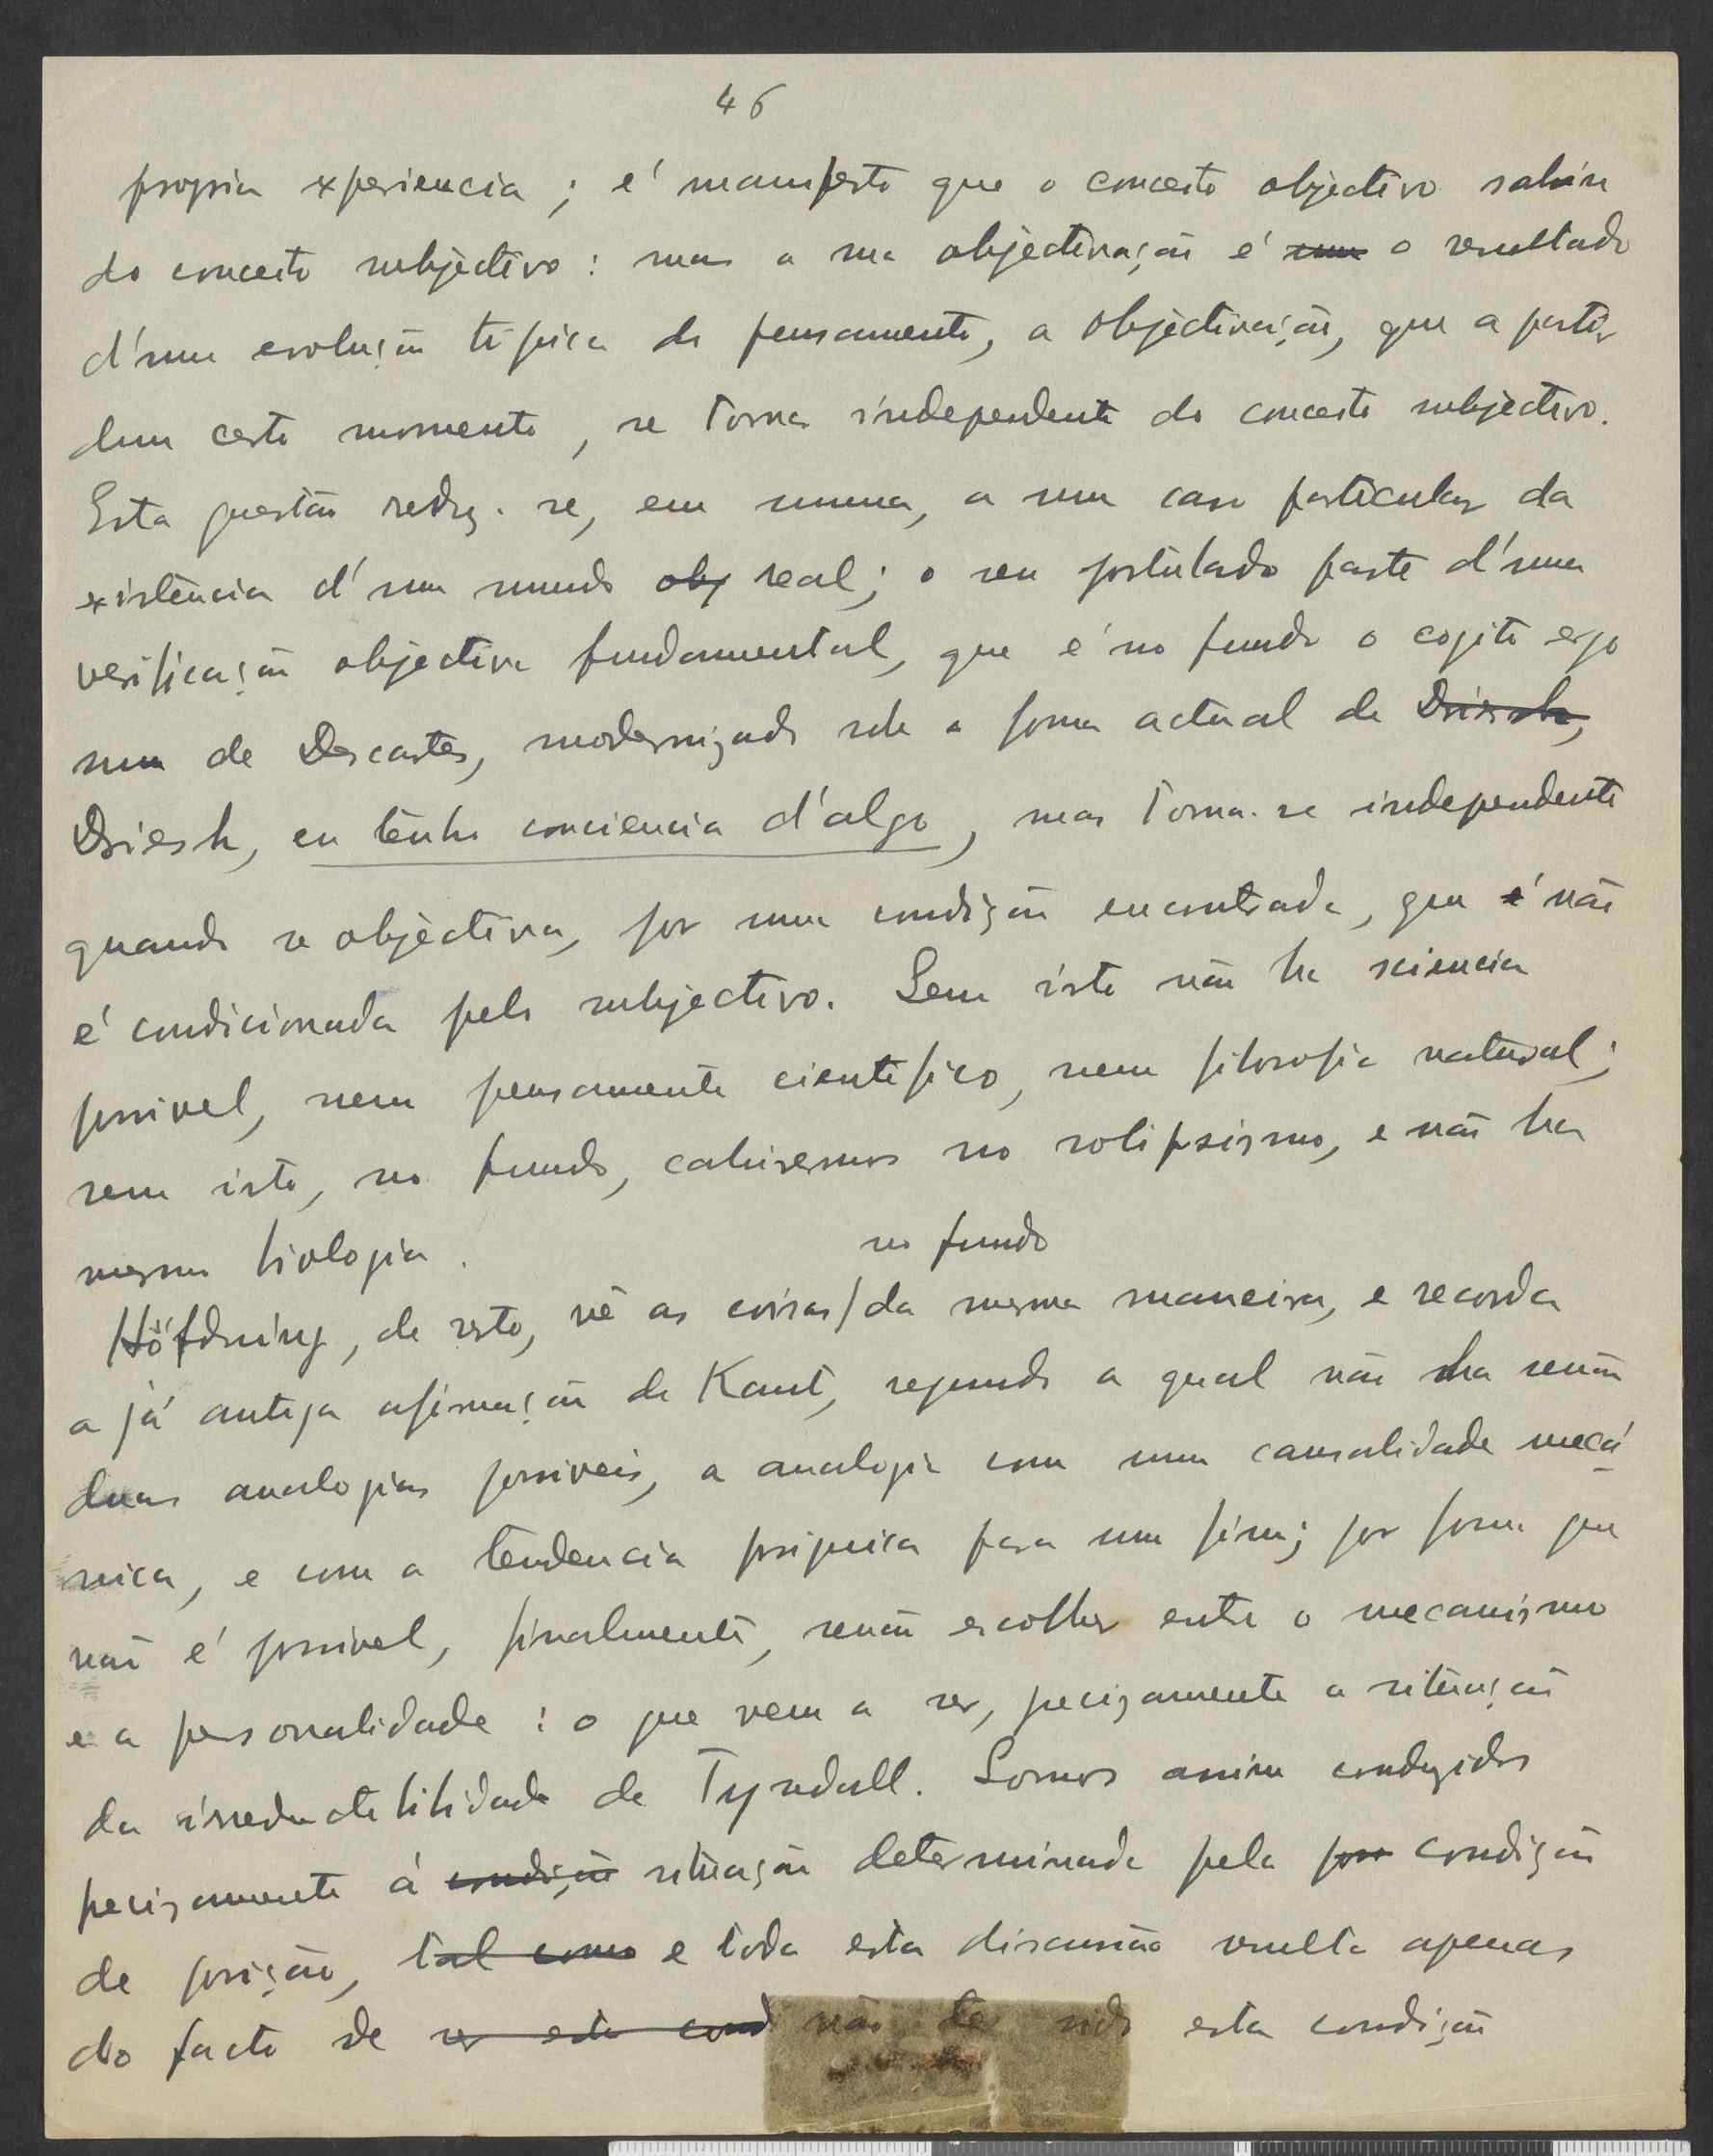 46
propria experiencia ; é manifesto que o conceito objectivo sahiu
do conceito subjectivo : mas a sua objectivação é uma o resultado
d'uma evolução tipica do pensamento, a objectivação, que a partir
dum certo momento, se torna independente do conceito subjectivo.
Esta questão reduz-se, em summa, a um caso particular da
existencia d'um mundo obj real; o seu postulado parte d'uma
verificação objectiva fundamental, que é no fundo o cogito ergo
sum de Descartes, modernizado sob a forma actual de Driesch,
Driesh, eu tenho conciencia d'algo, mas torna-se independente
quando se objectiva, por uma condição encontrada, que é não
é condicionada pelo subjectivo. Sem isto não ha sciencia
possivel, nem pensamento cientifico, nem filosofia natural;
sem isto, no fundo, cahiremos no solipsismo, e não ha
mesmo biologia.
no fundo
Höfdning, de resto, vê as coisas/da mesma maneira, e recorda
a já antiga afirmação de Kant, segundo a qual não ha senão
duas analogias possiveis, a analogia com uma causalidade mecâ
nica, e com a tendencia psiquica para um fim; por forma que
não é possivel, finalmente, senão escolher entre o mecanismo
e a personalidade : o que vem a ser, precizamente a situação
da irreductibilidade de Tyndall. Somos assim conduzidos
precizamente á condição situação determinada pela pos condição
de posição, tal como e toda esta discussão resulta apenas
do facto de ser esta cond não ter sido esta condição